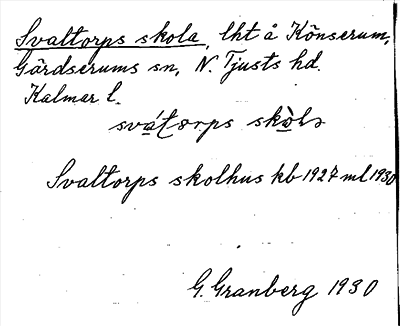 Svaltorps skola, lht å Könserum,
Gärdserums sn, N. Tjusts hd.
Kalmar l.
Svaltorps skolhus kb 1927 ml 1930
G. Granberg 1930